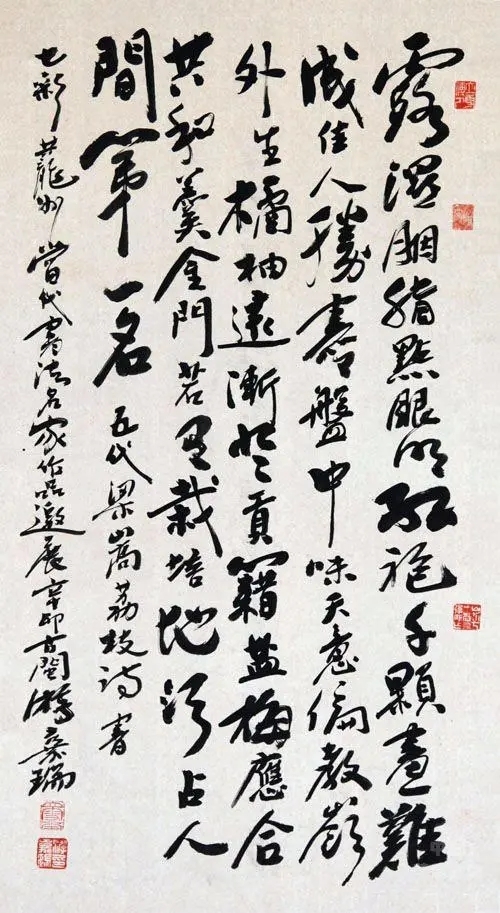 露濕胭脂點眼明紅袍千顆畫難
成佳人勝喜盤中味天意偏教嶺
外生橘柚遠漸登貢籍盐梅應合
共和羹金門若有栽培地須占人
間第一名 五代梁嵩荔枝詩 書
七彩龔州當代書法名家作品邀展辛卯古閩游嘉瑞